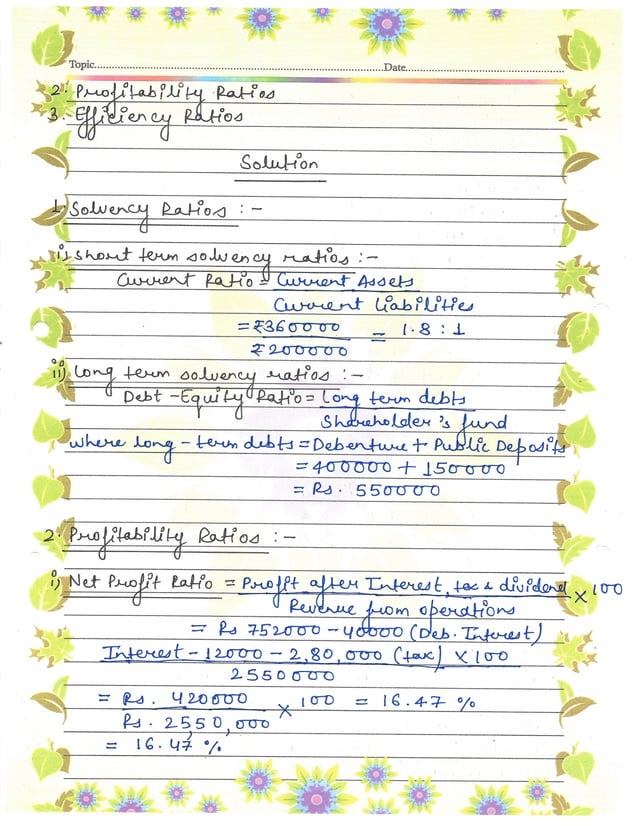 Topic................................ Date................................
2. Profitability Ratios
3. Efficiency Ratios
Solution
1. Solvency Ratios :-
i) Short term solvency ratios :-
Current Ratio = Current Assets
Current Liabilities
= ₹360000 = 1.8 : 1
₹200000
ii) Long term solvency ratios :-
Debt - Equity Ratio = Long term debts
Shareholder's fund
where long - term debts = Debenture + Public Deposits
= 400000 + 150000
= Rs. 550000
2. Profitability Ratios :-
i) Net Profit Ratio = Profit after Interest, tax & dividend × 100
Revenue from operations
= Rs 752000 - 40000 (Deb. Interest)
Interest - 12000 - 2,80,000 (tax) × 100
2550000
= Rs. 420000 × 100 = 16.47 %
Rs. 2,550,000
= 16.47 %